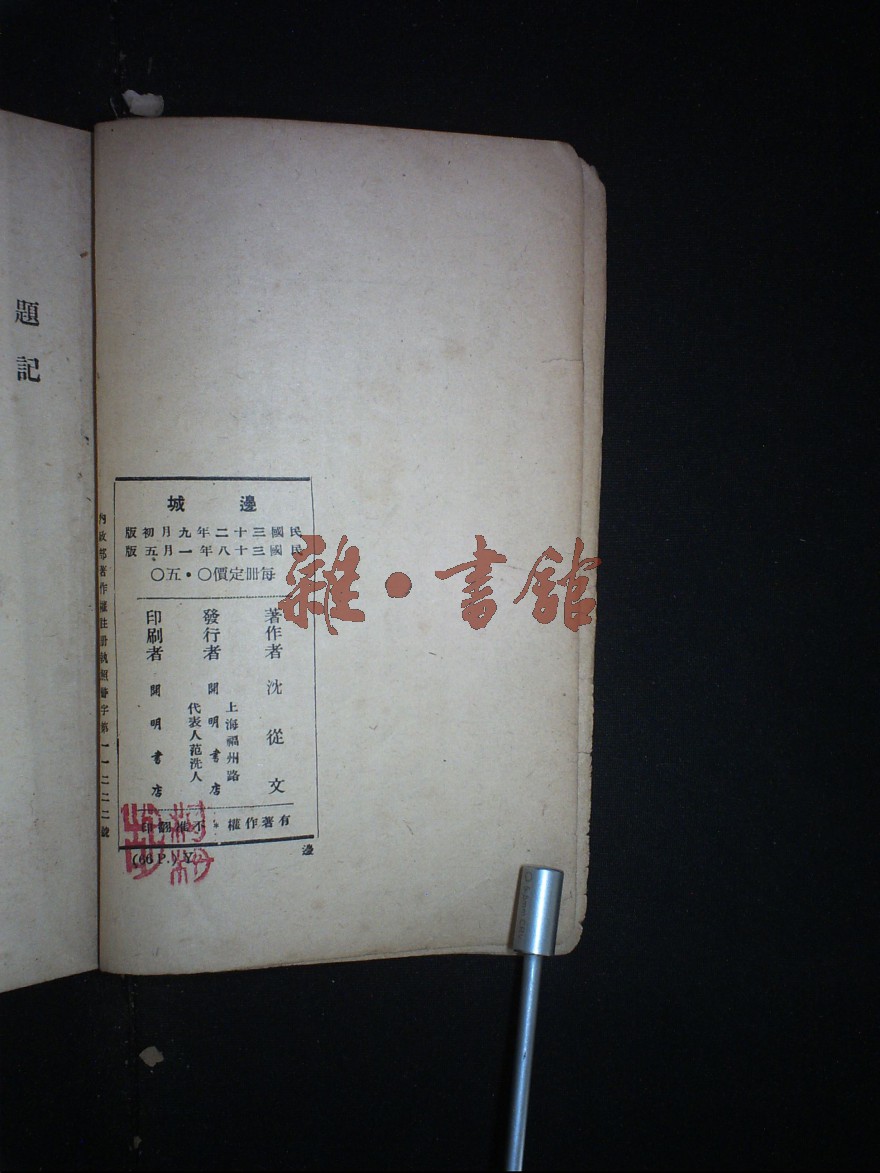 題記
邊城
民國三十二年九月初版
民國三十八年一月五版
每冊定價〇·五〇
著作者 沈從文
發行者 開明書店
上海福州路
代表人范洗人
印刷者 開明書店
有著作權·不准翻印
(66 P.) Y
邊
內政部著作權註冊執照警字第一一二二二號
雜·書館